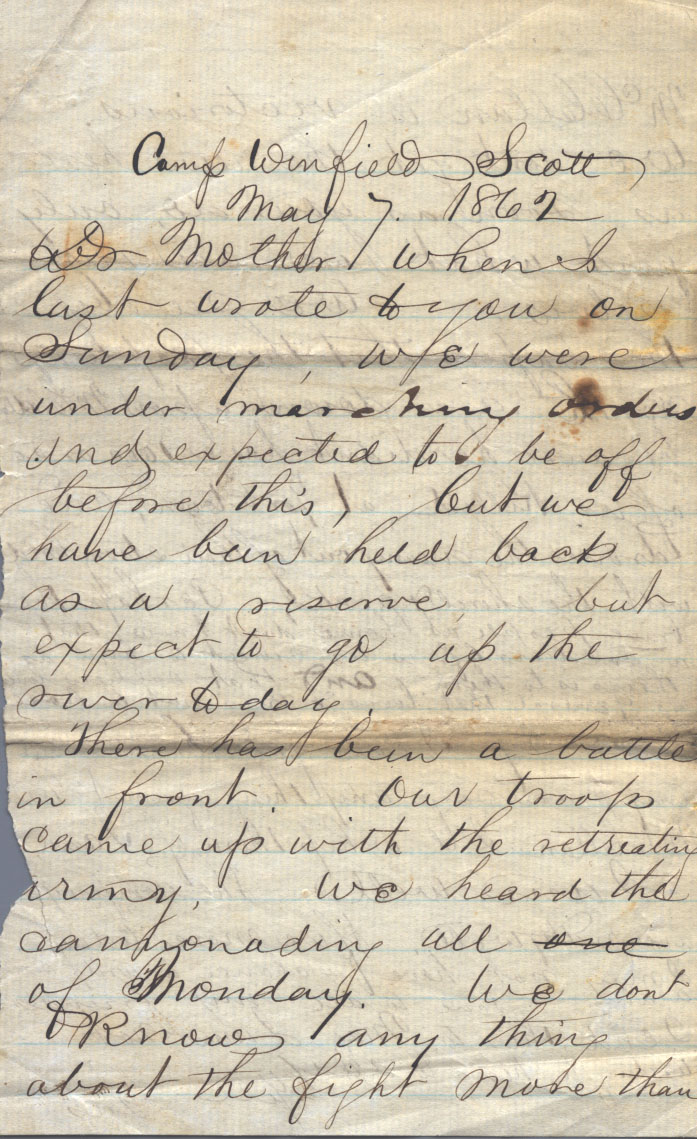 Camp Winfield Scott
May 7. 1862
Dr Mother when I
last wrote to you on
Sunday, we were
under marching orders
and expected to be off
before this, but we
have been held back
as a reserve but
expect to go up the
river today.
There has been a battle
in front. Our troops
came up with the retreating
army, We heard the
cannonading all one
of Monday. We dont
know any thing
about the fight more than